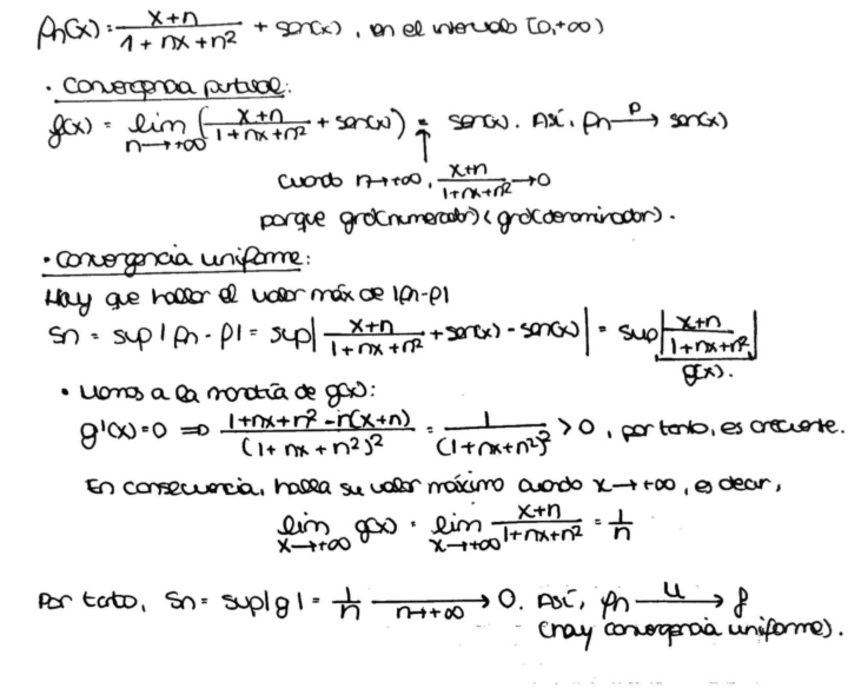 fn(x) = \frac{x+n}{1+nx+n^2} + sen(x), en el intervalo [0,+∞)
· Convergencia puntual:
f(x) = lim_{n→+∞} (\frac{x+n}{1+nx+n^2} + sen(x)) = sen(x). Así, fn \xrightarrow{p} sen(x)
↑
cuando n→+∞, \frac{x+n}{1+nx+n^2} → 0
porque grd(numerador) < grd(denominador).
· Convergencia uniforme:
Hay que hallar el valor máx de |fn-f|
Sn = sup|fn-f| = sup|\frac{x+n}{1+nx+n^2} + sen(x) - sen(x)| = sup|\frac{x+n}{1+nx+n^2}|
g(x).
• Vamos a la monotonía de g(x):
g'(x)=0 ⇒ \frac{1+nx+n^2-n(x+n)}{(1+nx+n^2)^2} = \frac{1}{(1+nx+n^2)^2} > 0, por tanto, es creciente.
En consecuencia, halla su valor máximo cuando x→+∞, es decir,
lim_{x→+∞} g(x) = lim_{x→+∞} \frac{x+n}{1+nx+n^2} = \frac{1}{n}
Por tanto, Sn = sup|g| = \frac{1}{n} \xrightarrow{n→+∞} 0. Así, fn \xrightarrow{u} f
(hay convergencia uniforme).